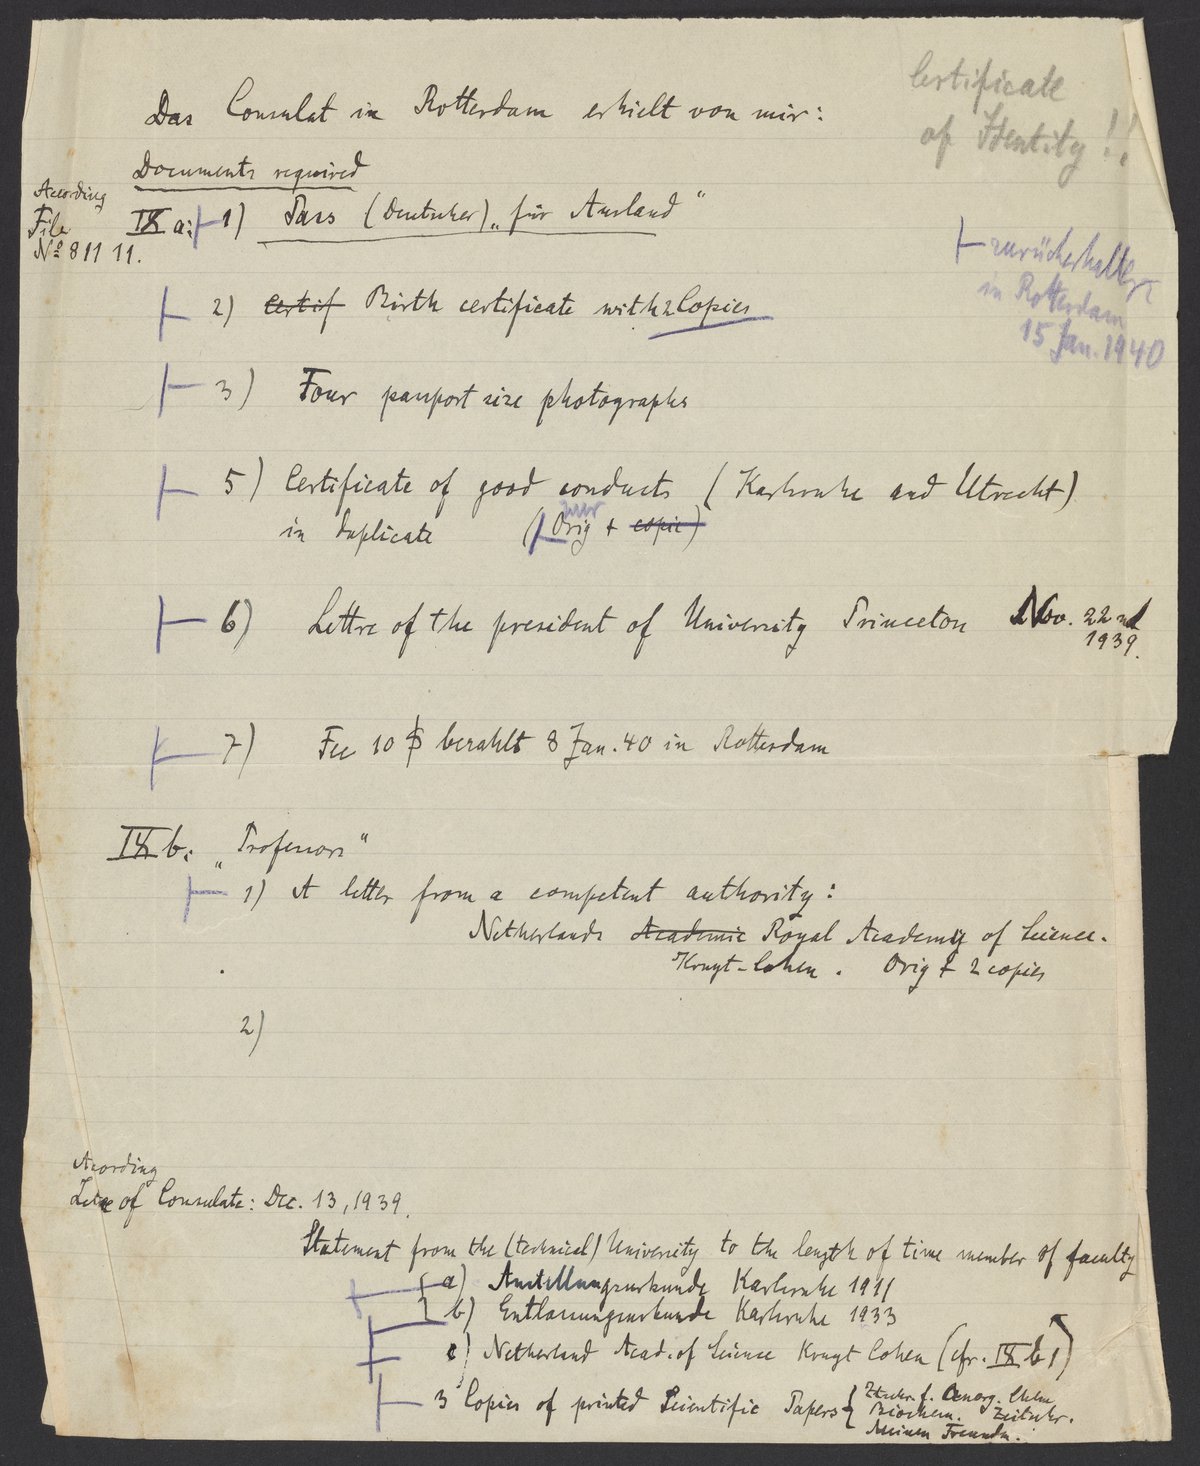 Certificate
of Identity!!
Das Consulat in Rotterdam erhielt von mir:
Documents required
Acording
File
Nº 811 11.
IX a: 1) Pass (Deutscher) „für Ausland"
zurückerhalten
in Rotterdam
15 Jan. 1940
2) Certif Birth certificate with 2 Copies
3) Four passport size photographs
5) Certificate of good conducts (Karlsruhe and Utrecht)
in duplicate (nur Orig + copie)
6) Lettre of the president of University Princeton Nov. 22nd
1939.
7) Fee 10 $ bezahlt 8 Jan. 40 in Rotterdam
IX b: „Professors"
1) A letter from a competent authority:
Netherlands Academie Royal Academy of Science.
Kruyt-Cohen. Orig & 2 copies
2)
Acording
Letre of Consulate: Dec. 13, 1939.
Statement from the (technical) University to the length of time member of faculty
a) Anstellungsurkunde Karlsruhe 1911
b) Entlassungsurkunde Karlsruhe 1933
c) Netherland Acad. of Science Kruyt Cohen (cfr. IX b 1)
3 Copies of printed Scientific Papers { Ztschr. f. Anorg. Chem
Biochem. Zeitschr.
Meinen Freunden.